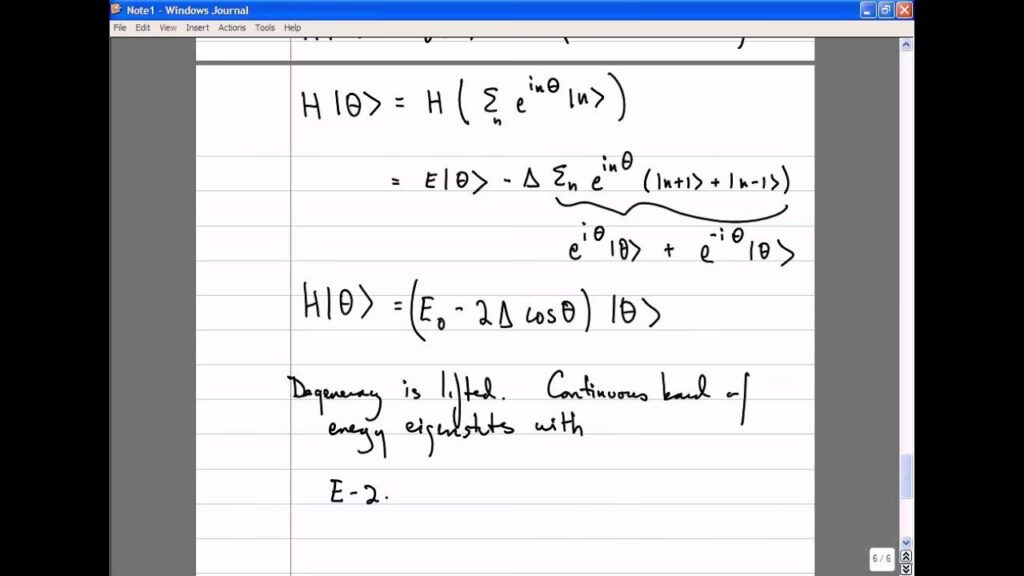 Note1 - Windows Journal
File Edit View Insert Actions Tools Help
H|θ> = H ( Σₙ e^{inθ} |n> )
= E|θ> - Δ Σₙ e^{inθ} (|n+1> + |n-1>)
e^{iθ}|θ> + e^{-iθ}|θ>
H|θ> = (E₀ - 2Δ cosθ) |θ>
Degeneracy is lifted. Continuous band of
energy eigenstates with
E-2.
6/6